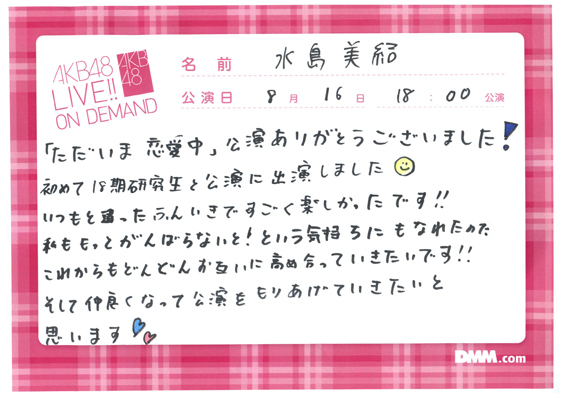 AKB48
LIVE!!
ON DEMAND
AKB
48
名前 水島美結
公演日 8月16日 18:00公演
「ただいま 恋愛中」公演ありがとうございました!
初めて18期研究生と公演に出演しました
いつもと違ったふんいきですごく楽しかったです!!
私ももってがんばらないと!という気持ちにもなれたのた
これからもどんどんお互いに高め合っていきたいです!!
そして仲良くなって公演をもりあげていきたいと
思います
DMM.com